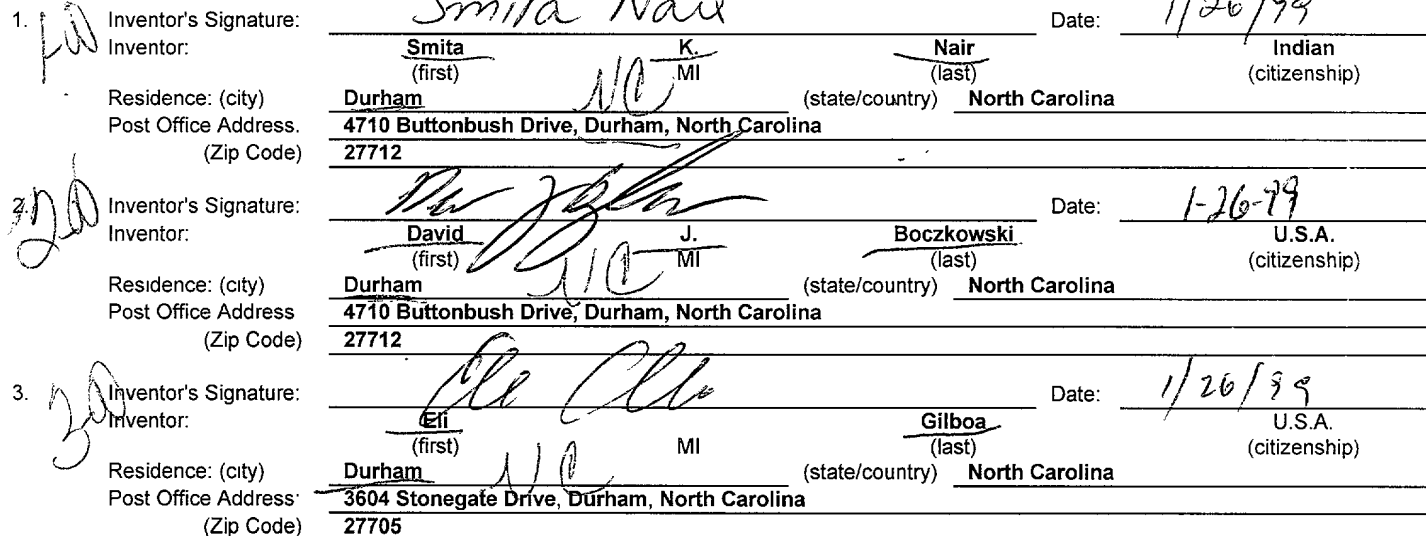 1. Inventor's Signature: Smita Nair Date: 1/26/99
Inventor: Smita K. Nair Indian
(first) MI (last) (citizenship)
NC
Residence: (city) Durham (state/country) North Carolina
Post Office Address. 4710 Buttonbush Drive, Durham, North Carolina
(Zip Code) 27712
2. Inventor's Signature: Date: 1-26-99
Inventor: David J. Boczkowski U.S.A.
(first) MI (last) (citizenship)
NC
Residence: (city) Durham (state/country) North Carolina
Post Office Address 4710 Buttonbush Drive, Durham, North Carolina
(Zip Code) 27712
3. Inventor's Signature: Date: 1/26/99
Inventor: Eli Gilboa U.S.A.
(first) MI (last) (citizenship)
NC
Residence: (city) Durham (state/country) North Carolina
Post Office Address 3604 Stonegate Drive, Durham, North Carolina
(Zip Code) 27705